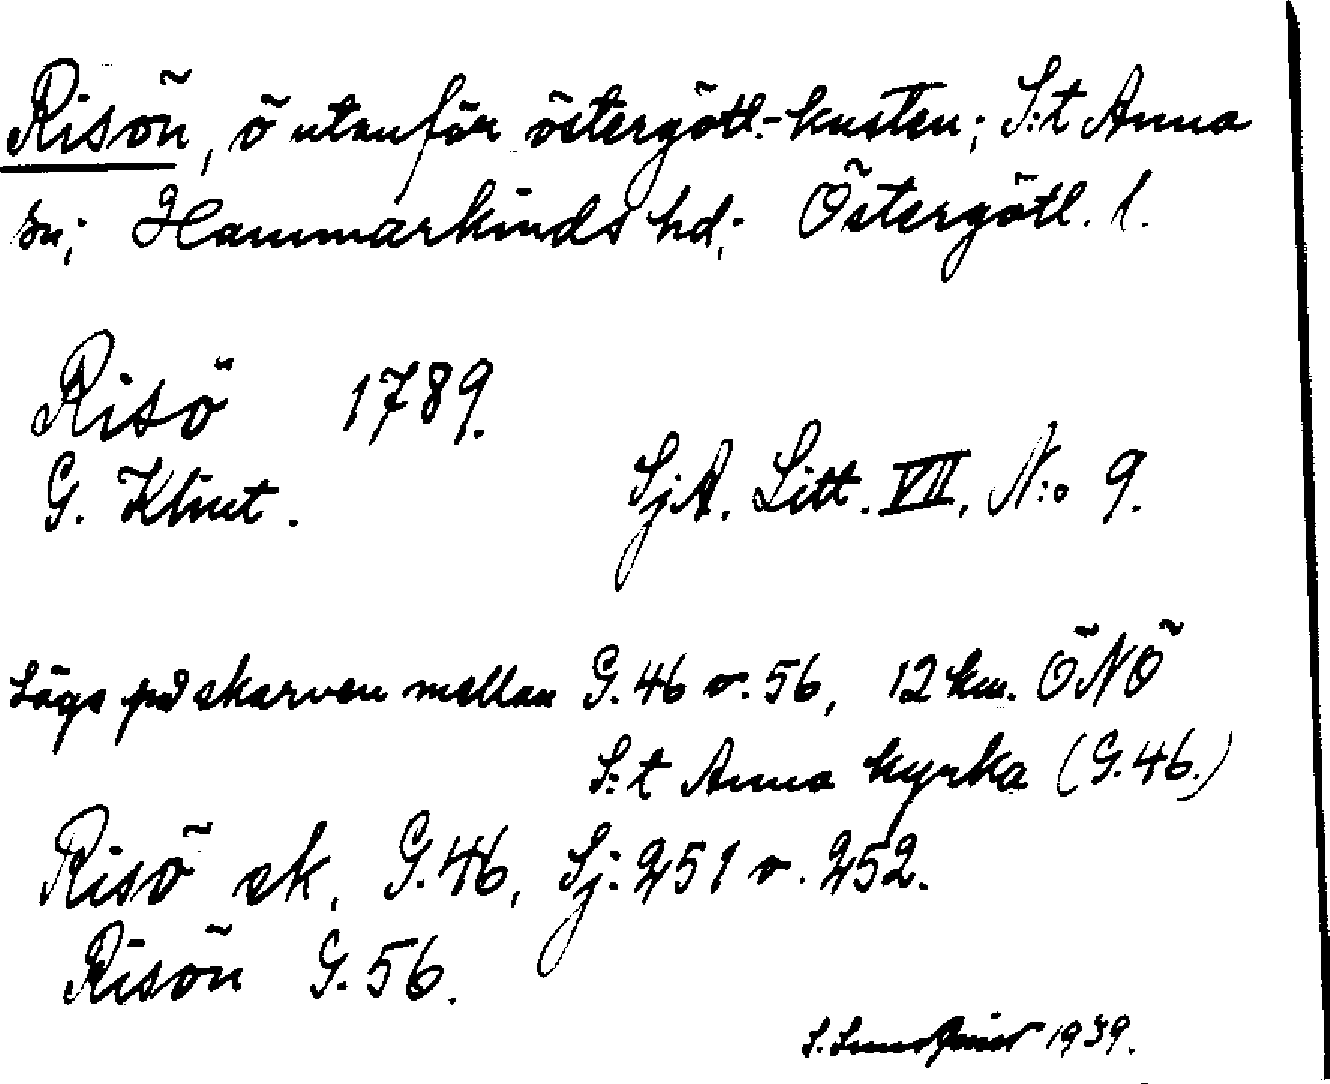 Risön, ö utanför östergötl.-kusten; S:t Anna
sn; Hammarkinds hd; Östergötl. l.
Risö 1789.
G. Klint. SjA. Litt. VII, N:o 9.
Läge på skarven mellan G.46 o. 56, 12 km. ÖNÖ
S:t Anna kyrka (G.46.)
Risö sk. G.46, Sj. 251 o. 252.
Risön G.56.
1939.